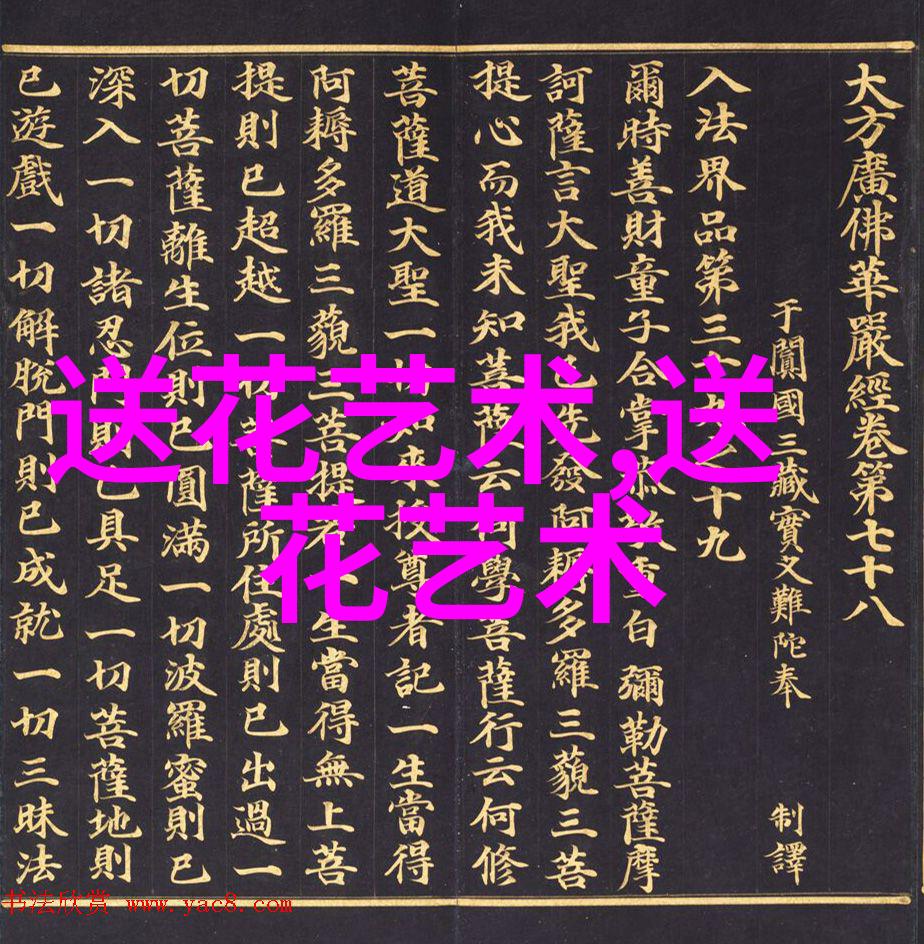 大方廣佛華嚴經卷第七十八
于闐國三藏實叉難陀奉 制譯
入法界品第三十九之十九
爾時善財童子合掌恭敬重白彌勒菩薩摩
訶薩言大聖我已先發阿耨多羅三藐三菩
提心而我未知菩薩云何學菩薩行云何修
菩薩道大聖一切如來授尊者記一生當得
阿耨多羅三藐三菩提若一生當得無上菩
提則已超越一切菩薩所住處則已出過一
切菩薩離生位則已圓滿一切波羅蜜則已
深入一切諸忍門則已具足一切菩薩地則
已遊戲一切解脫門則已成就一切三昧法
送花艺术,送
花艺术
书法欣赏 www.yac8.com